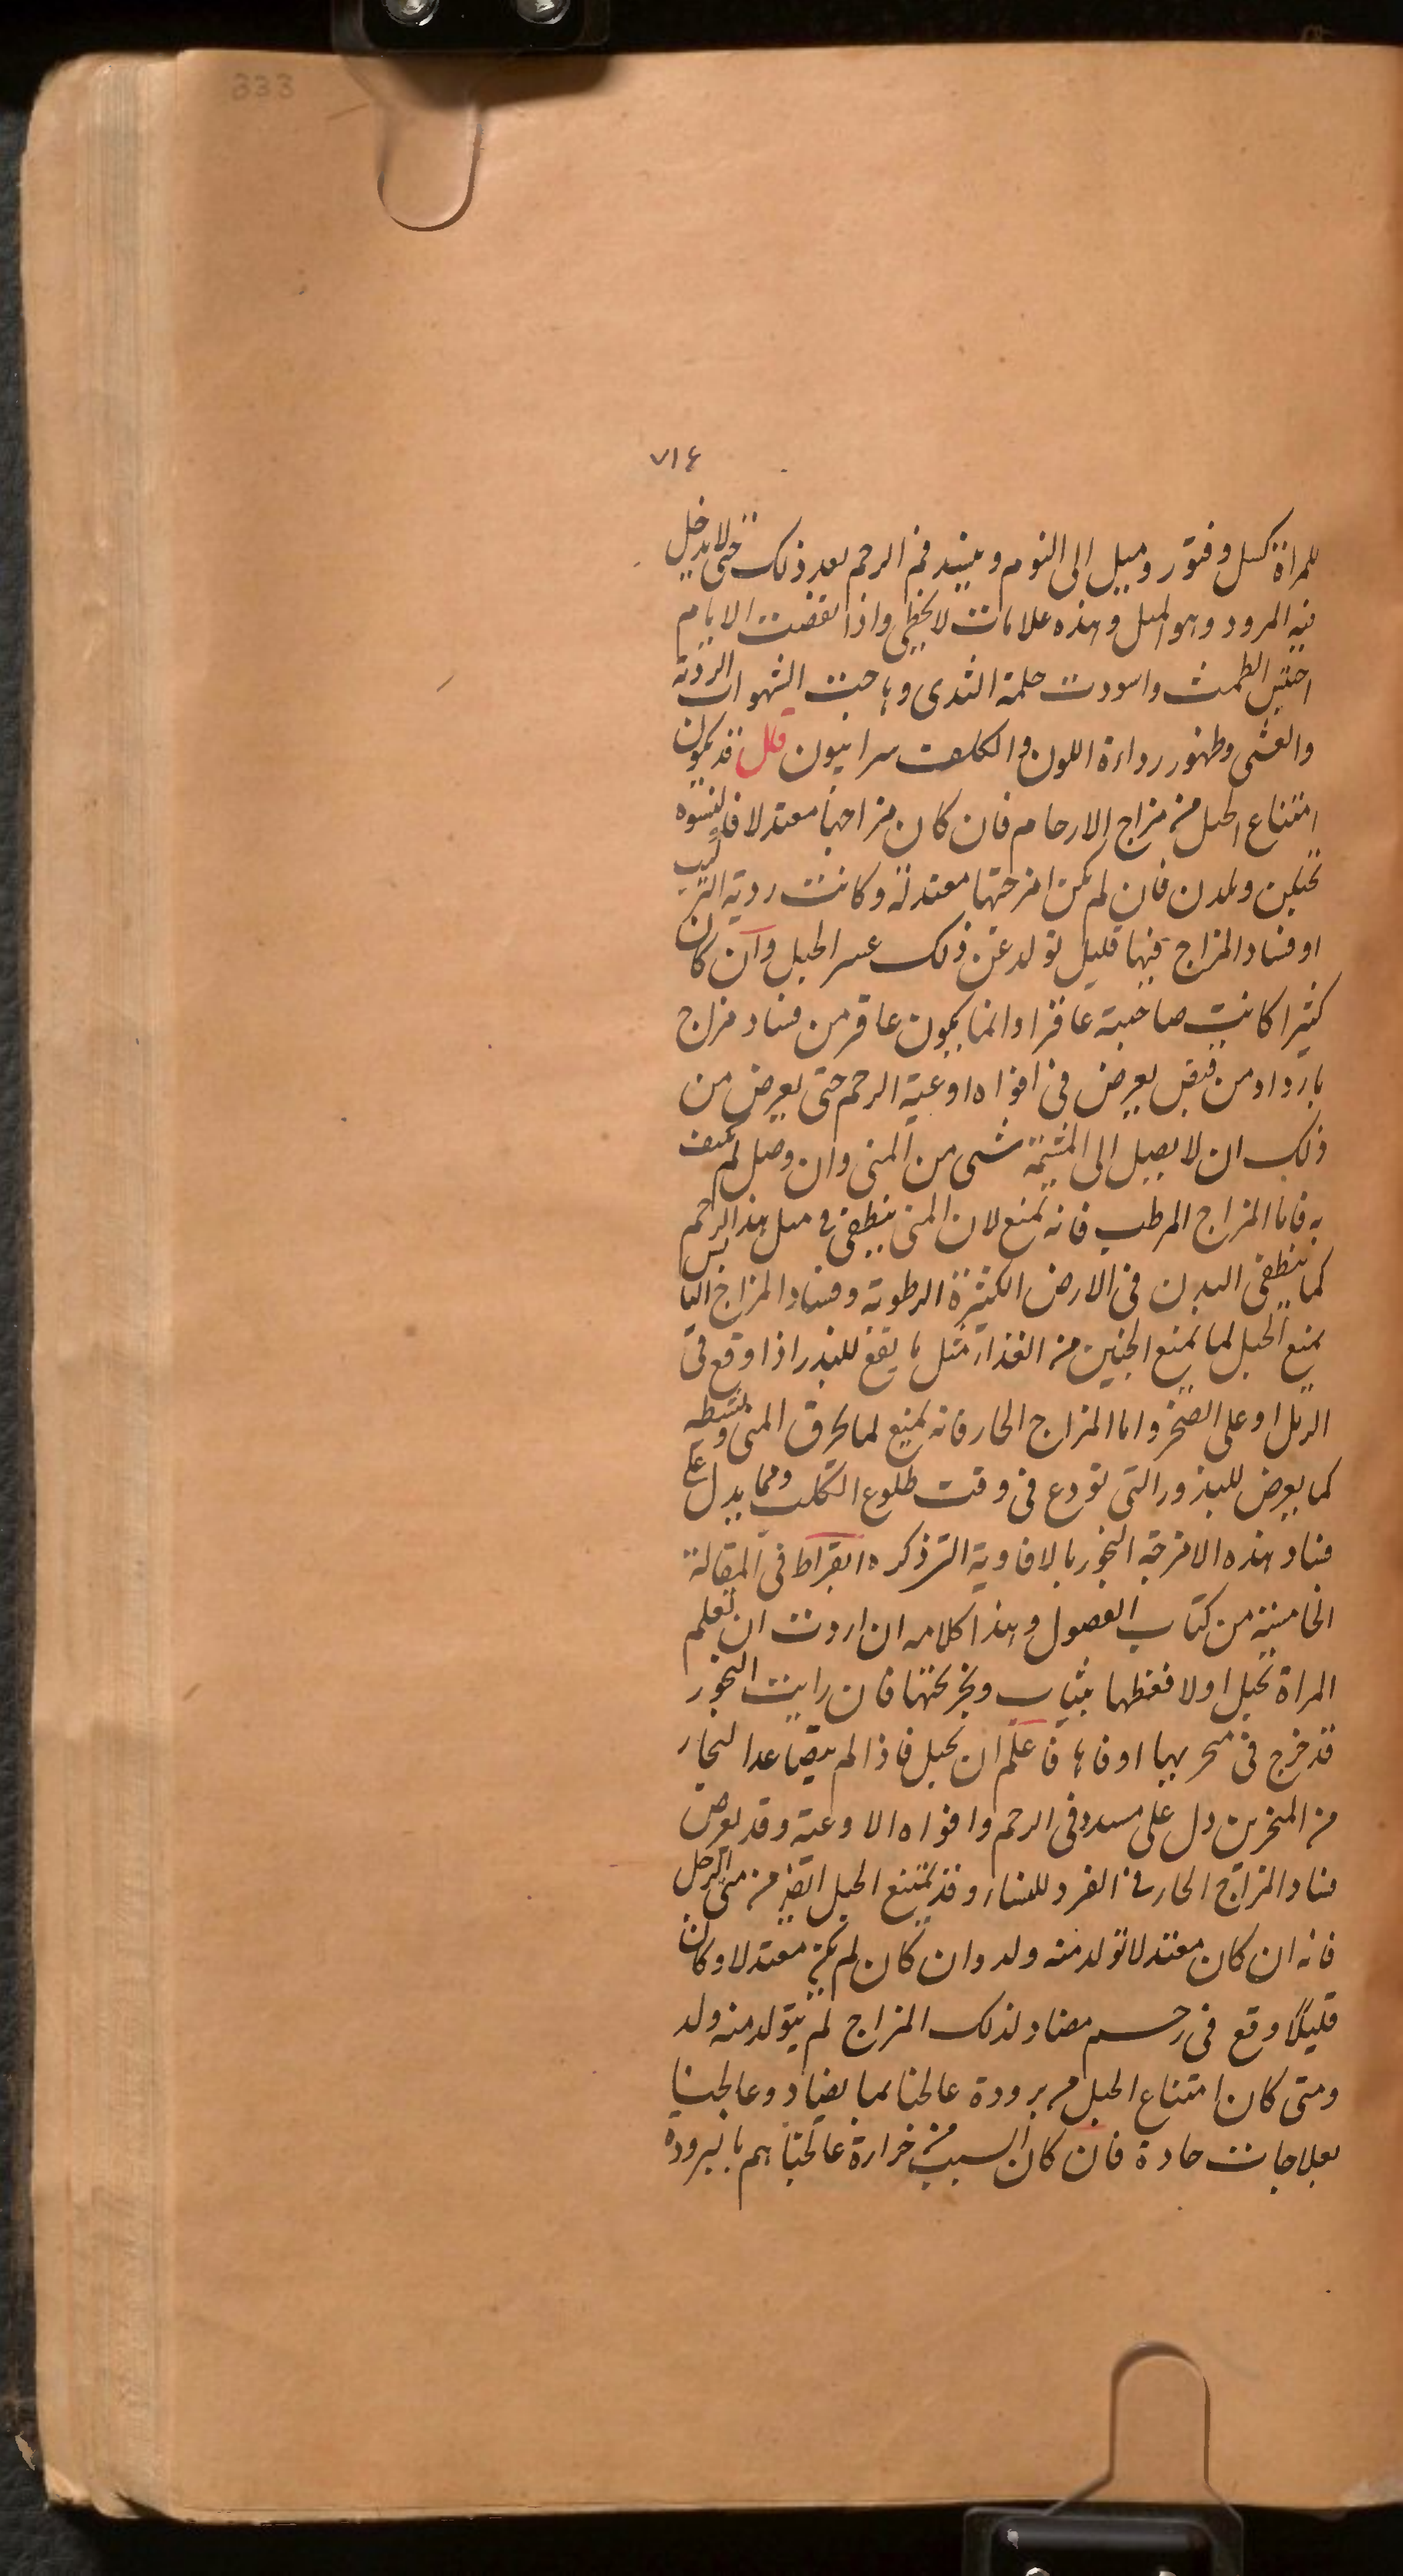 333
٧١٤
للمراة كسل وفتور وميل الى النوم وينسد فم الرحم بعد ذلك حتى لا يدخل
فيه المرود وهو الميل وهذه علامات لا تخطى واذا نقضت الايام
احتبس الطمث واسودت حلمة الثدى وهاجت الشهوات الردئة
والغشى وظهور رداءة اللون والكلف سرابيون قال قد يكون
امتناع الحبل من مزاج الارحام فان كان مزاجها معتدلا فالنسوه
تحبلن ويلدن فان لم يكن امزجتها معتدلة وكانت ردية التركيب
او فساد المزاج فيها قليل تولد عن ذلك عسر الحبل وان كان
كثيرا كانت صاحبته عاقرا وانما يكون عاقر من فساد مزاج
بارد او من قبض يعرض فى افواه اوعية الرحم حتى يعرض من
ذلك ان لا يصل الى المشيمة شى من المنى وان وصل لم
به فاما المزاج المرطب فانه يمنع لان المنى ينطفى فى مثل هذا الرحم
كما ينطفى البدن فى الارض الكثيرة الرطوبة وفساد المزاج اليابس
يمنع الحبل لما يمنع الجنين من الغذاء مثل ما يقع للبذر اذا وقع فى
الرمل او على الصخر واما المزاج الحار فانه يمنع لما يحرق المنى
كما يعرض للبذور التى تودع فى وقت طلوع الكلب ومما يدل على
فساد هذه الامزجة البخور بالافاوية الذى ذكره ابقراط فى المقالة
الخامسة من كتاب الفصول وهذا كلامه ان اردت ان تعلم
المراة تحبل اولا فغطها بثياب وبخر تحتها فان رايت البخور
قد خرج فى منخريها او فاها فاعلم ان تحبل فاذا لم يتصاعد البخار
من المنخرين دل على سدد فى الرحم وافواه الاوعية وقد يعرض
فساد المزاج الحار فى الفرد للنساء وقد يمتنع الحبل ايضا من منى الرجل
فانه ان كان معتدلا تولد منه ولد وان كان لم يكن معتدلا وكان
قليلا وقع فى رحم مضاد لذلك المزاج لم يتولد منه ولد
ومتى كان امتناع الحبل من برودة عالجنا بما يضاد وعالجنا
بعلاجات حادة فان كان السبب من حرارة عالجناهم بالبرودة